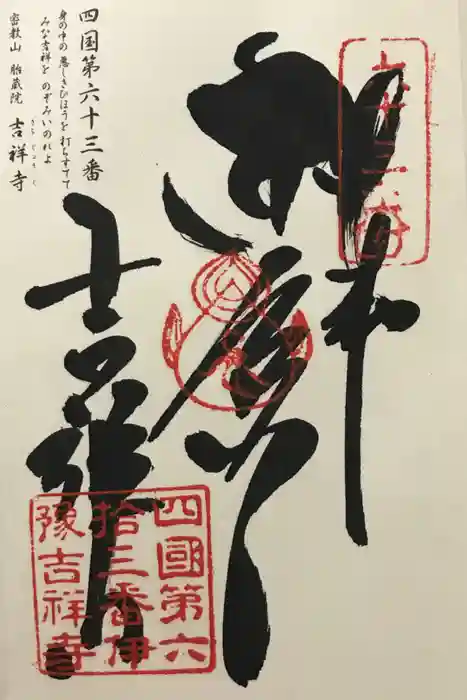 四国第六十三番
身の中の 悪しきひほうを 打ちすてて
みな吉祥を のぞみいのれよ
密教山 胎蔵院 吉祥寺
きちじょうじ
奉
吉祥寺
四國第六
拾三番伊
豫吉祥寺